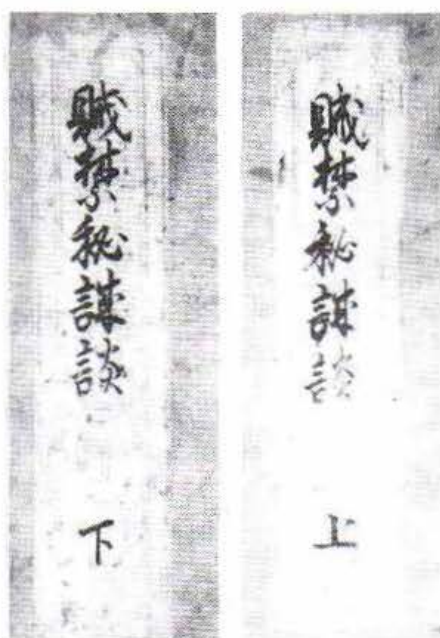 賊禁秘誠談 上
賊禁秘誠談 下